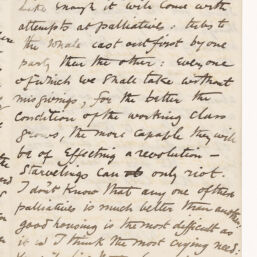 like enough it will come with
attempts at palliatives: tubs to
the whale cast out first by one
party then the other: Everyone
of which we shall take without
misgivings, for the better the
condition of the working class
grows, the more capable they will
be of effecting a revolution —
Starvelings can only riot.
I don't know that any one of these
palliatives is much better than another:
good housing is the most difficult as
it is I think the most crying need: